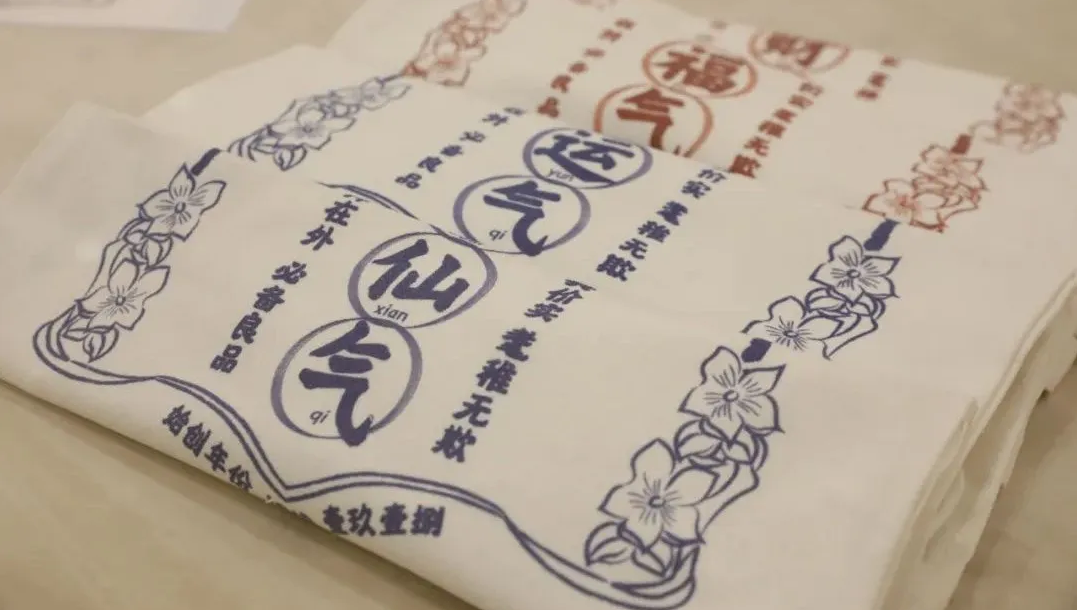 财
福
气
必备良品
耄稚无欺
运
yun
气
qi
必备良品
价实 耄稚无欺
仙
xian
气
qi
在外 必备良品
价实 耄稚无欺
始创年份
壹玖壹捌